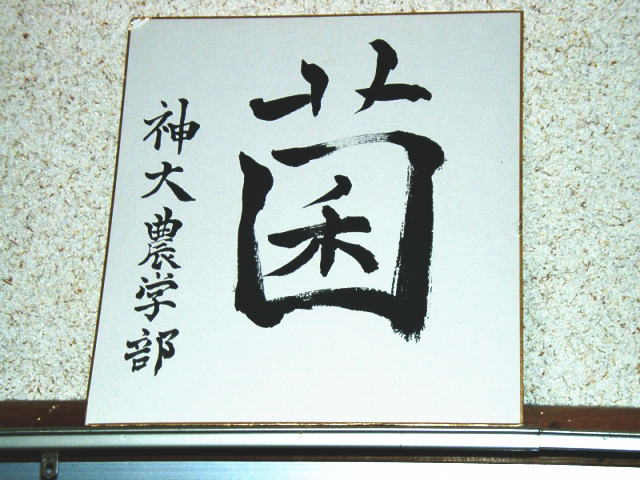 菌
神大農学部